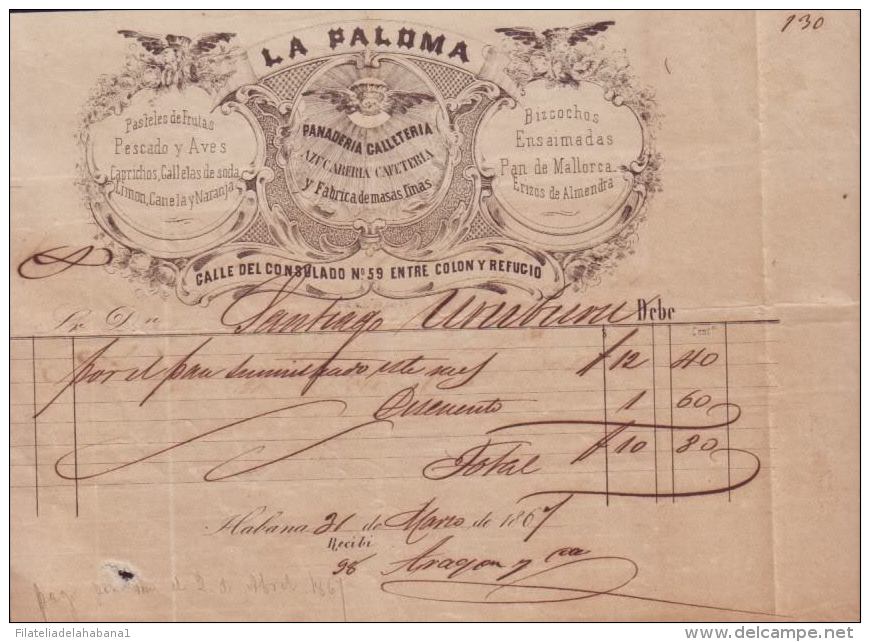 130
LA PALOMA
Pasteles de Frutas
Pescado y Aves
Caprichos, Galletas de soda
Limon, Canela y Naranja
PANADERIA GALLETERIA
AZUCARERIA CAFETERIA
y Fabrica de masas finas
Bizcochos
Ensaimadas
Pan de Mallorca
Erizos de Almendra
CALLE DEL CONSULADO Nº 59 ENTRE COLON Y REFUGIO
Sr. Dn Santiago Debe
Cents
por el pan suministrado este mes $ 12 40
Descuento 1 60
Total $ 10 80
Habana 31 de Marzo de 1867
Recibi
Aragon y Cia
2 de Abril 1867
Filateliadelahabana1
www.delcampe.net